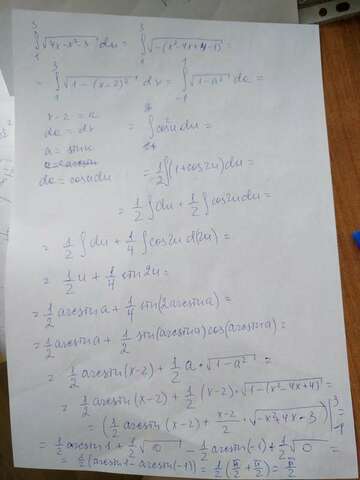 ∫₁³ √(4x-x²-3) dx = ∫₁³ √(-(x²-4x+4-1)) =
= ∫₁³ √(1-(x-2)²) dx = ∫₋₁¹ √(1-a²) da =
x-2 = a
da = dx = ∫cos²u du =
a = sin u
da = cos u du = 1/2 ∫(1+cos2u)du =
= 1/2 ∫du + 1/2 ∫cos2u du =
= 1/2 ∫du + 1/4 ∫cos2u d(2u) =
= 1/2 u + 1/4 sin2u =
= 1/2 arcsin a + 1/4 sin(2arcsin a) =
= 1/2 arcsin a + 1/2 sin(arcsin a) cos(arcsin a) =
= 1/2 arcsin(x-2) + 1/2 a · √(1-a²) =
= 1/2 arcsin(x-2) + 1/2 (x-2) · √(1-(x²-4x+4)) =
= (1/2 arcsin(x-2) + (x-2)/2 · √(-x²+4x-3)) |₁³ =
= 1/2 arcsin 1 + 1/2 √0 - 1/2 arcsin(-1) + 1/2 √0 =
= 1/2 (arcsin 1 - arcsin(-1)) = 1/2 (π/2 + π/2) = π/2